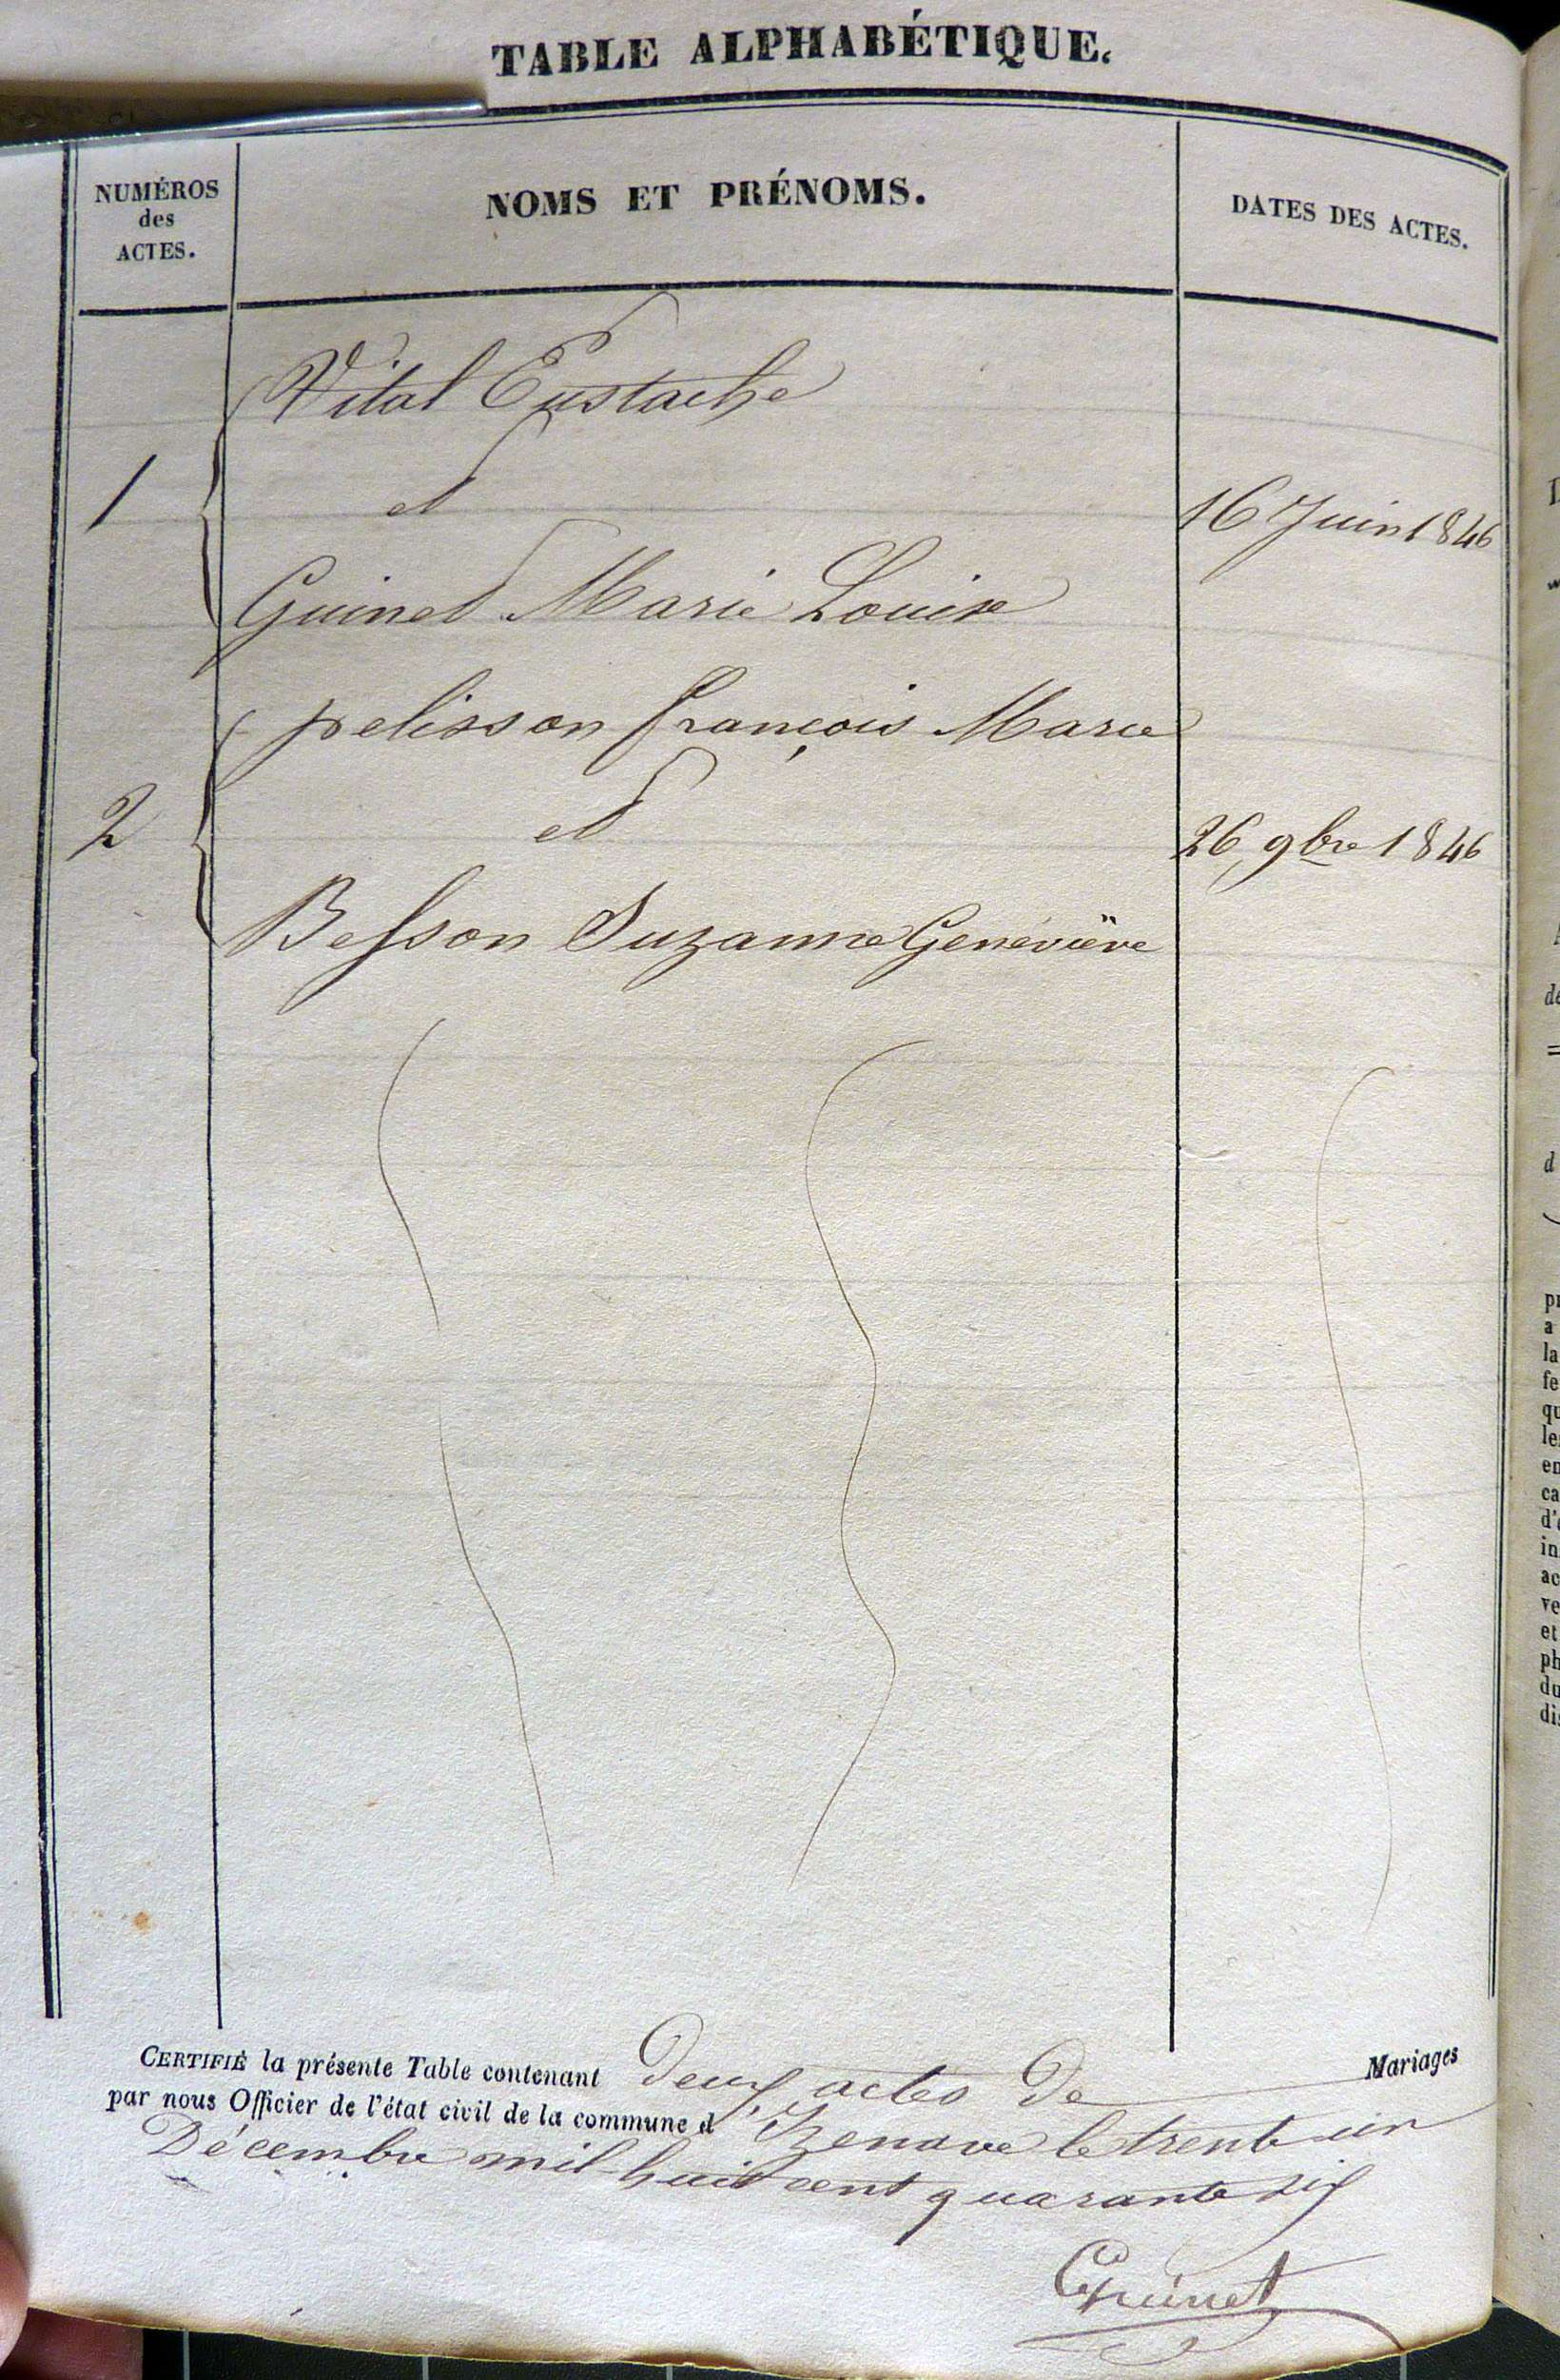 TABLE ALPHABÉTIQUE.
NUMÉROS
des
ACTES.
NOMS ET PRÉNOMS.
DATES DES ACTES.
Vital Eustache
1
et
16 Juin 1846
Guinet Marie Louise
pelisson françois Marie
2
et
26 9bre 1846
Besson Suzanne Geneviève
CERTIFIÉ la présente Table contenant Deux actes De Mariages
par nous Officier de l'état civil de la commune d'Izenave le trente un
Décembre mil huit cent quarante six
Guinet